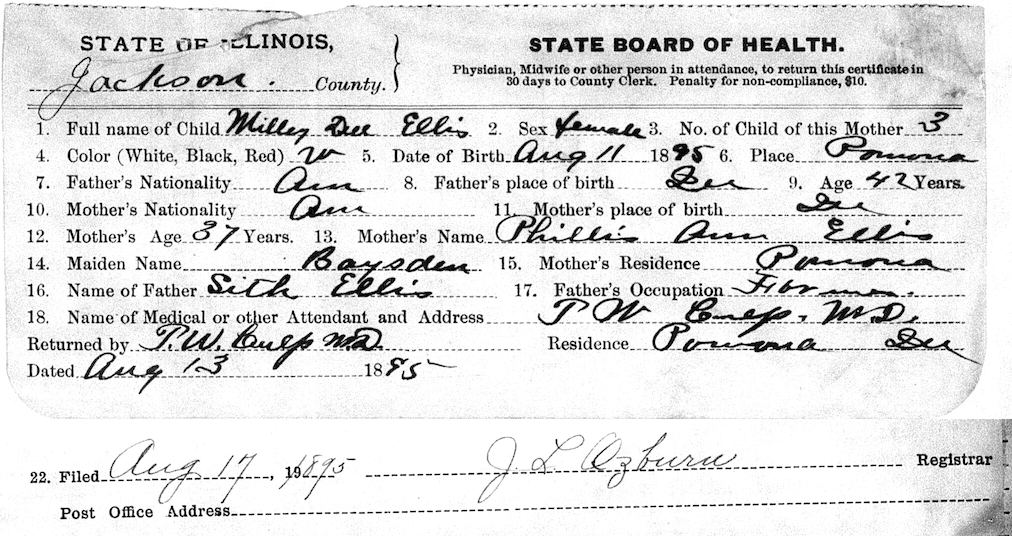 STATE OF ILLINOIS,
Jackson. County.
STATE BOARD OF HEALTH.
Physician, Midwife or other person in attendance, to return this certificate in
30 days to County Clerk. Penalty for non-compliance, $10.
1. Full name of Child Milley Dee Ellis 2. Sex female 3. No. of Child of this Mother 3
4. Color (White, Black, Red) W 5. Date of Birth Aug 11 1895 6. Place Pomona
7. Father's Nationality Am 8. Father's place of birth Ill 9. Age 42 Years.
10. Mother's Nationality Am 11. Mother's place of birth Ill
12. Mother's Age 37 Years. 13. Mother's Name Phillis Ann Ellis
14. Maiden Name Baysden 15. Mother's Residence Pomona
16. Name of Father Sith Ellis 17. Father's Occupation
18. Name of Medical or other Attendant and Address T W Culp. M.D.
Returned by T. W. Culp MD. Residence Pomona Ill
Dated Aug 13 1895
22. Filed Aug 17, 1895 J. L. Ozburn Registrar
Post Office Address